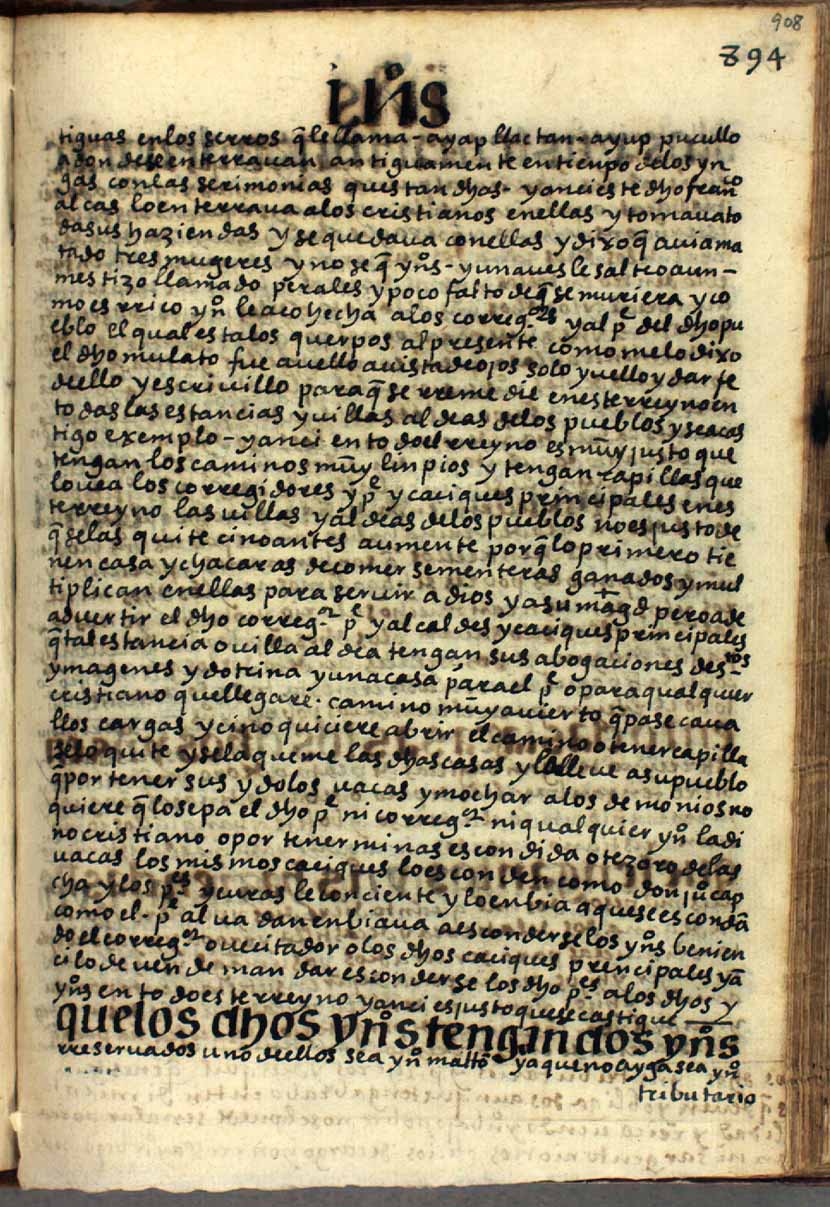 908
894
ynos
tiguas en los serros q̃ le llama - ayap llactan - ayup pucullo
adondese enterrauan antiguamente en tienpo de los yn
gas con las serimonias questan dhas - y anci este dho franco
alcas lo enterraua a los cristianos en ellas y tomaua to
das us haziendas y se quedaua con ellas y dixo q̃ auia ma
tado tres mugeres y no se q̃ yn̊s - y una ues le salteo a un -
mestizo llamado perales y poco falto de q̃ se muriera y co
mo es rrico yn̊ le a cohecha a los correg.res y al pe del dho pu
eblo el qual esta los querpos al presente como me lo dixo
el dho mulato fue a uello a uista de ojos solo y uello y dar fe
de ello y escriuillo para q̃ se rremedie en este rreyno en
todas las estancias y uillas aldeas de los pueblos y sea cas
tigo exemplo - y anci en todo el rreyno es muy justo que
tengan los caminos muy linpios y tengan capillas que
lo uea los corregidores y pe y caciques principales en es
te rreyno las uillas y aldeas de los pueblos no es justo de
q̃ se las quite cino antes aumente porq̃ lo primero tie
nen casa y chacaras de comer sementeras ganados y mul
tiplican en ellas para seruir a dios y a su magd pero a de
aduertir el dho correg.or pe y alcaldes y caciques principales
q̃ tal estancia o uilla aldea tengan sus abogaciones de stos
ymagenes y dotrina y una casa para el pe o para qualquier
cristiano que llegare - camino muy auierto q̃ pase caua
llos cargas y cino quiciere abrir el camino o tener capilla
se lo quite y se la queme las dhas casas y lleue a su pueblo
q̃ por tener sus ydolos uacas y mochar a los demonios no
quiere q̃ lo sepa el dho pe ni correg.or ni qualquier yn̊ ladi
no cristiano o por tener minas escondida o tezoro de las
uacas los mismos caciques lo esconden como don jů cap
cha y los pes y curas le conciente y lo enbia a que se escondã
como el - pe aluadan enbiaua a esconderse los yn̊s benien
do el correg.or o uecitador o los dhos caciques principales yã
ci lo deuen de mandar esconderse los dho pes a los dhos y
yn̊s en todo este rreyno y anci es justo que se castigue
que los dhos yn̊s tengan dos yn̊s
rreseruados uno de ellos sea yn̊ malto ya que no ayga sea yn̊
tributario